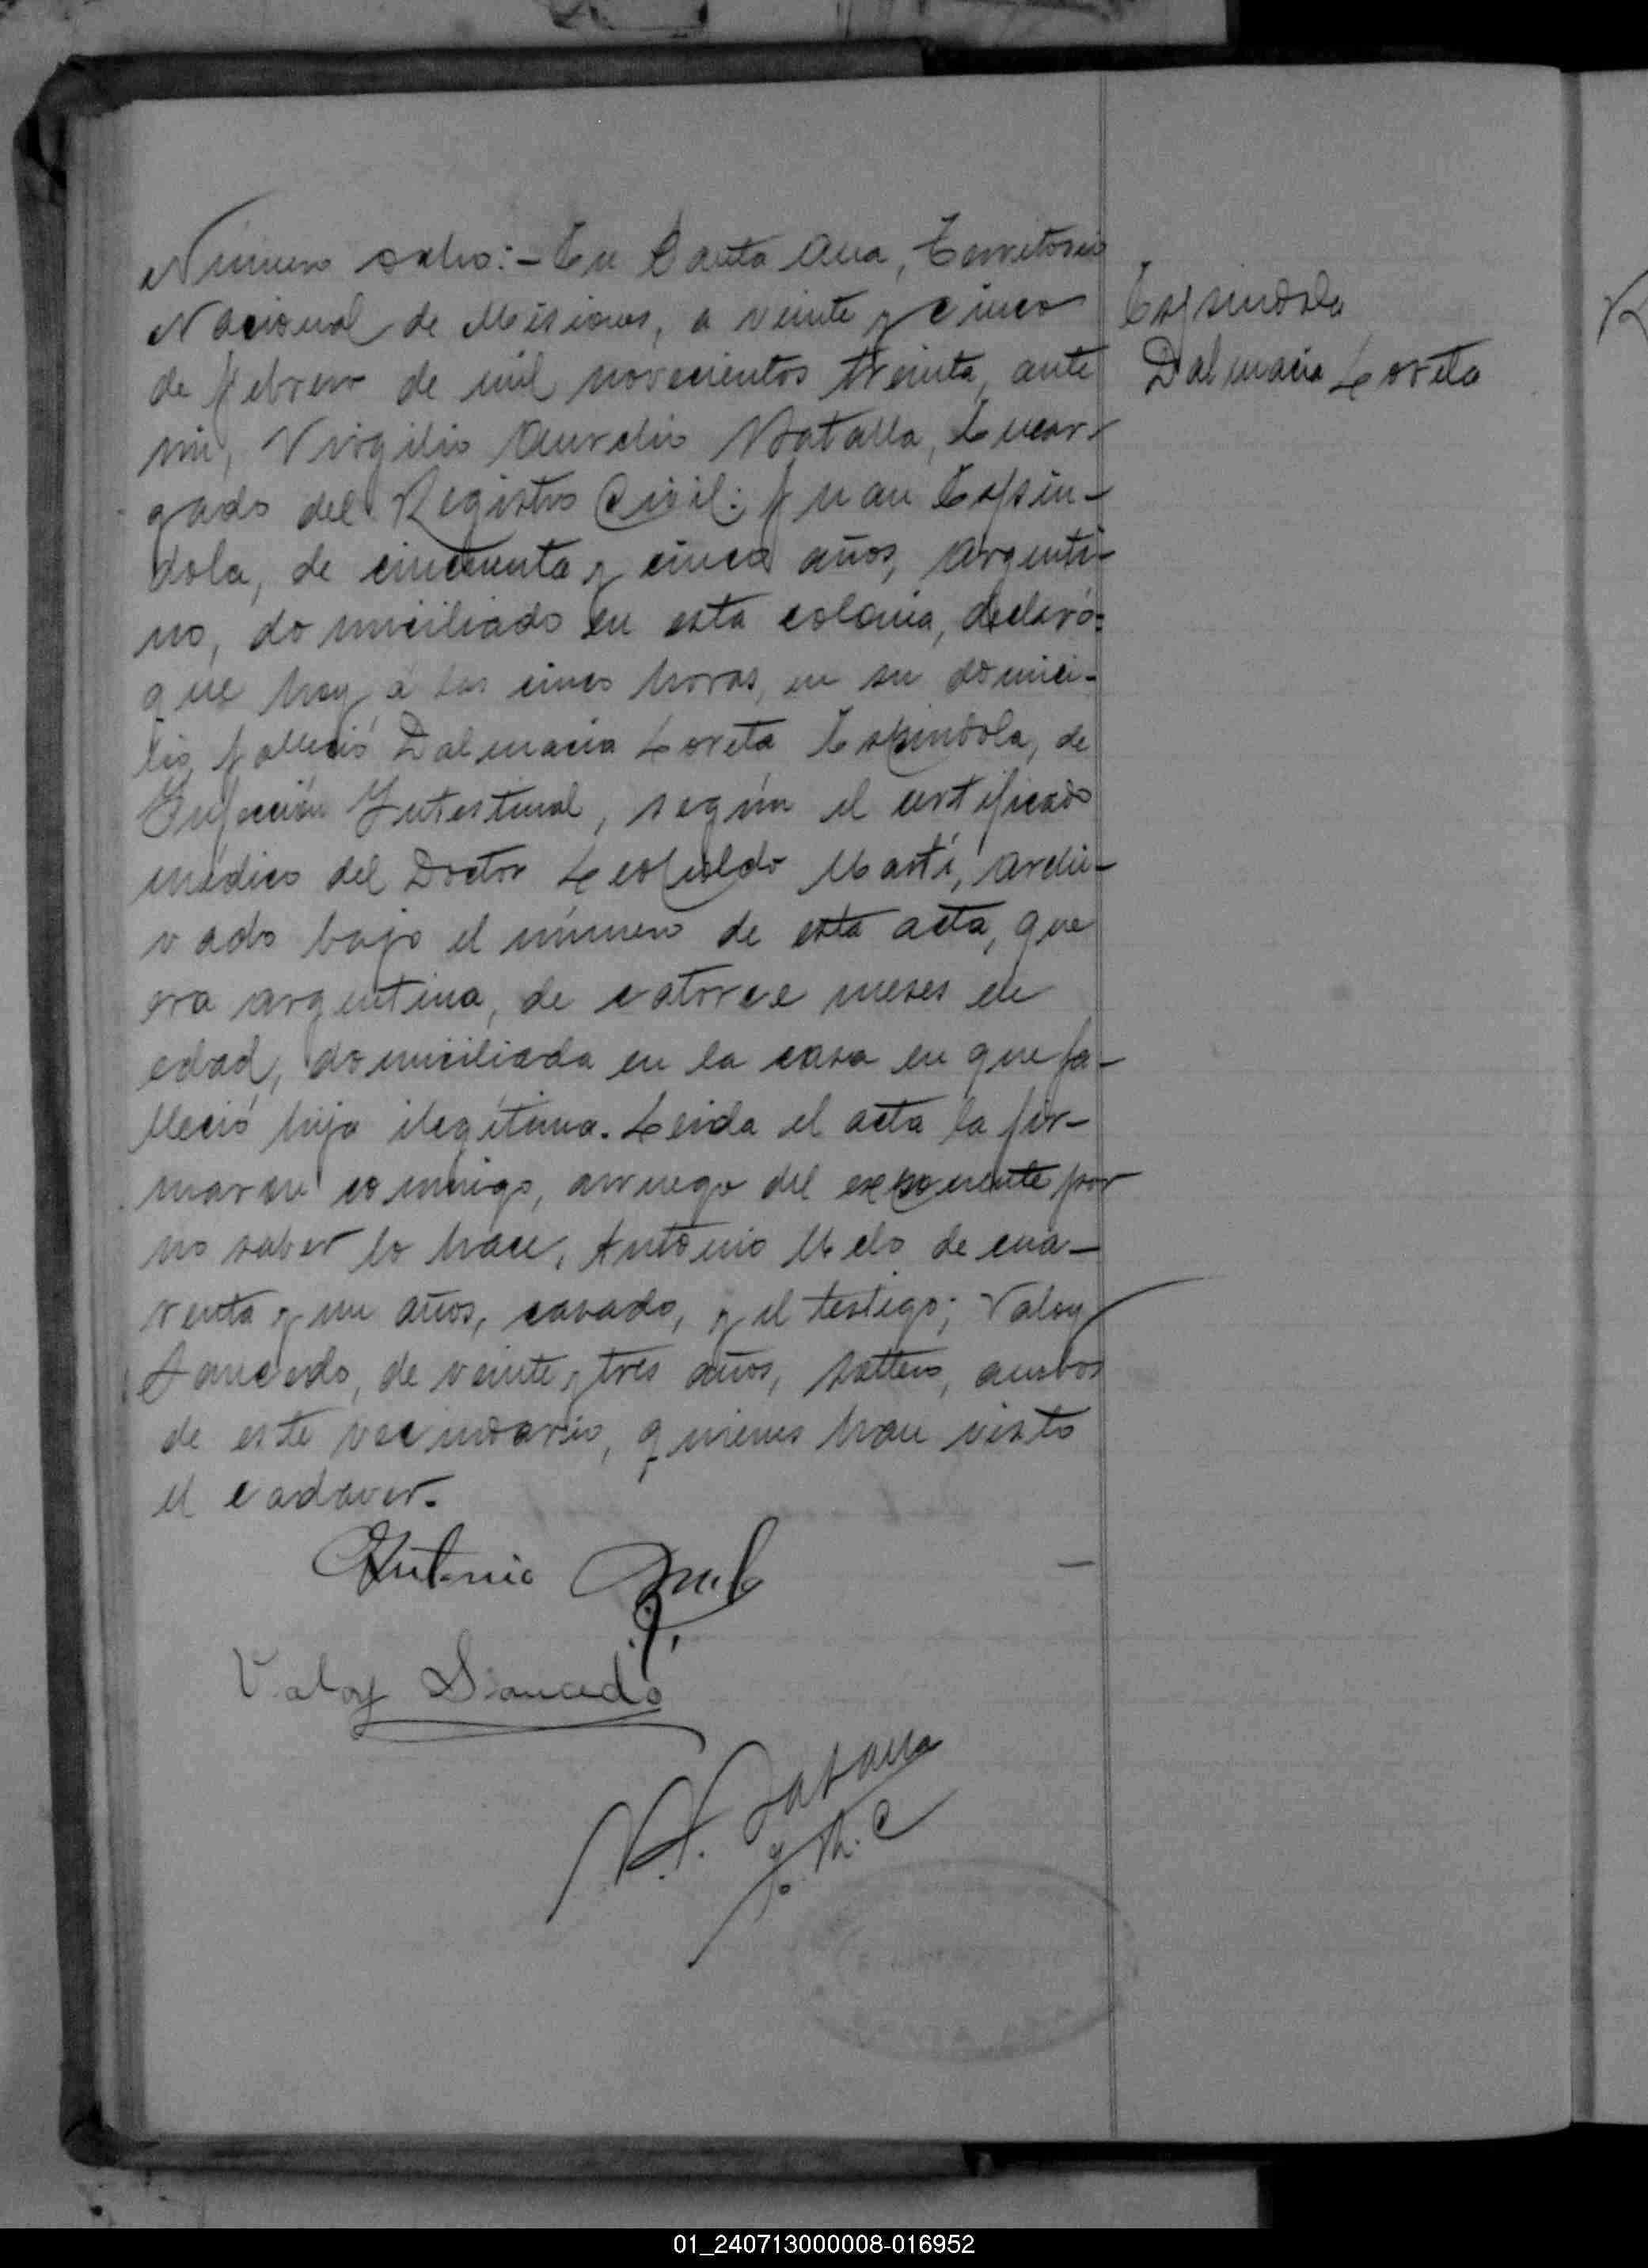 Número ocho:- En Santa Ana, Territorio
Nacional de Misiones, a veinte y cinco
de febrero de mil novecientos treinta, ante
mi, Virgilio Aurelio Batalla, Encar-
gado del Registro Civil: Juan Espín-
dola, de cincuenta y cinco años, argenti-
no, domiciliado en esta colonia, declaró:
que hoy á las cinco horas, en su domici-
lio, falleció Dalmacia Loreta Espindola, de
Infección Intestinal, según el certificado
médico del Doctor Leopoldo Martí, archi-
vado bajo el número de esta acta, que
era argentina, de catorce meses de
edad, domiciliada en la casa en que fa-
lleció hija ilegítima. Leida el acta la fir-
maron conmigo, arruego del exponente por
no saber lo hace, Antonio Melo de cua-
renta y un años, casado, y el testigo; Valoy
Saucedo, de veinte y tres años, soltero, ambos
de este vecindario, quienes han visto
el cadaver.
Espindola
Dalmacia Loreta
Antonio Melo
Valoy Saucedo
V. A. Batalla
01_240713000008-016952